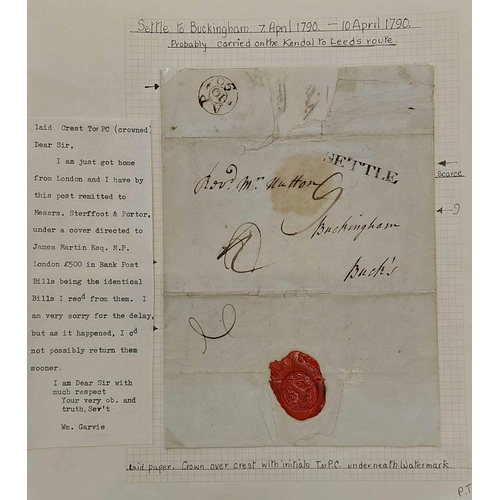 Settle to Buckingham 7 April 1790. — 10 April 1790.
Probably carried on the Kendal to Leeds route
laid Crest TorPC (crowned)
Dear Sir,
I am just got home
from London and I have by
this post remitted to
Messrs. Sterffoot & Portor,
under a cover directed to
James Martin Esq. M.P.
London £500 in Bank Post
Bills being the identical
Bills I rec^d from them. I
am very sorry for the delay,
but as it happened, I c^d
not possibly return them
sooner.
I am Dear Sir with
much respect
Your very ob. and
truth, Sev't
Wm. Garvie
AP
10
90
SETTLE
Rev^d. M^r. Hutton
9
Buckingham
Buck's
scarce
9
laid paper. Crown over crest with initials TorP.C. underneath Watermark.
P.T